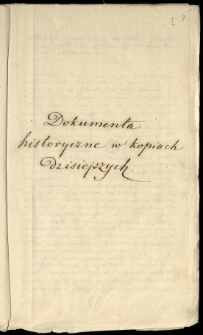 Dokumenta
historyczne w kopiach
dzisiejszych.